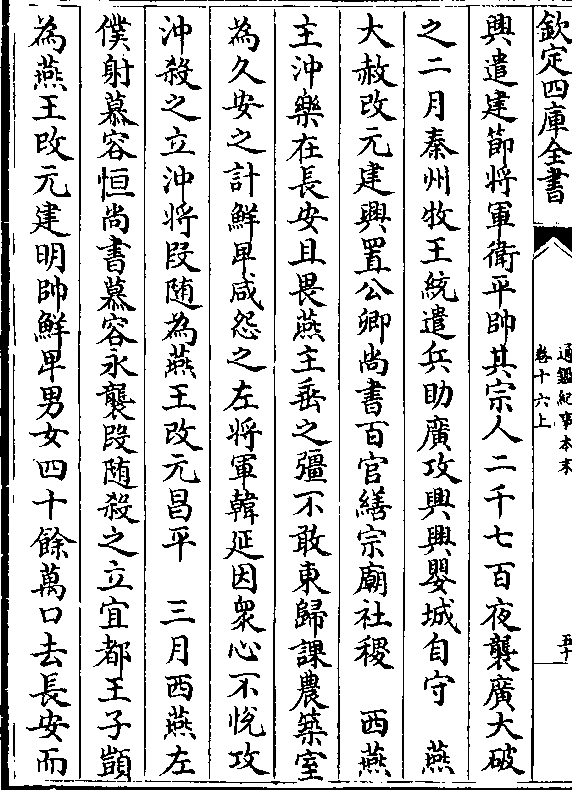 欽定四庫全書
通鑑紀事本末
卷十六上
五十
興遣建節將軍衛平帥其宗人二千七百夜襲廣大破
之二月秦州牧王統遣兵助廣攻興興嬰城自守　燕
大赦改元建興置公卿尚書百官繕宗廟社稷　西燕
主沖樂在長安且畏燕主垂之彊不敢東歸課農築室
為久安之計鮮卑咸怨之左將軍韓延因衆心不悅攻
沖殺之立沖將段隨為燕王改元昌平　三月西燕左
僕射慕容恒尚書慕容永襲段隨殺之立宜都王子顗
為燕王改元建明帥鮮卑男女四十餘萬口去長安而